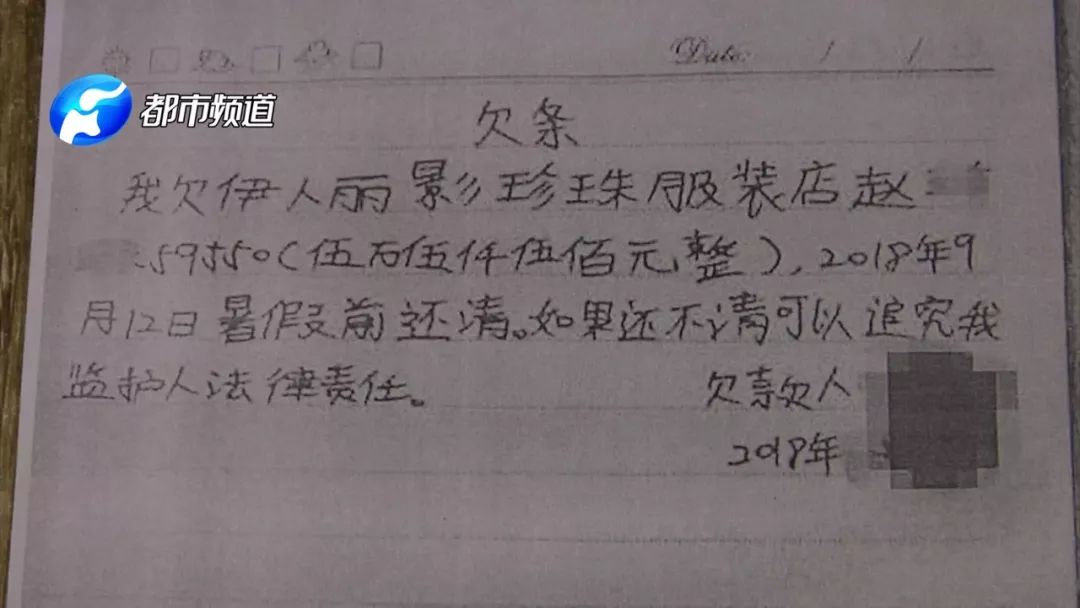 Date: / /
都市频道
欠条
我欠伊人丽影珍珠服装店赵
59550(伍万伍仟伍佰元整),2018年9
月12日暑假前还清。如果还不清可以追究我
监护人法律责任。 欠款人
2018年